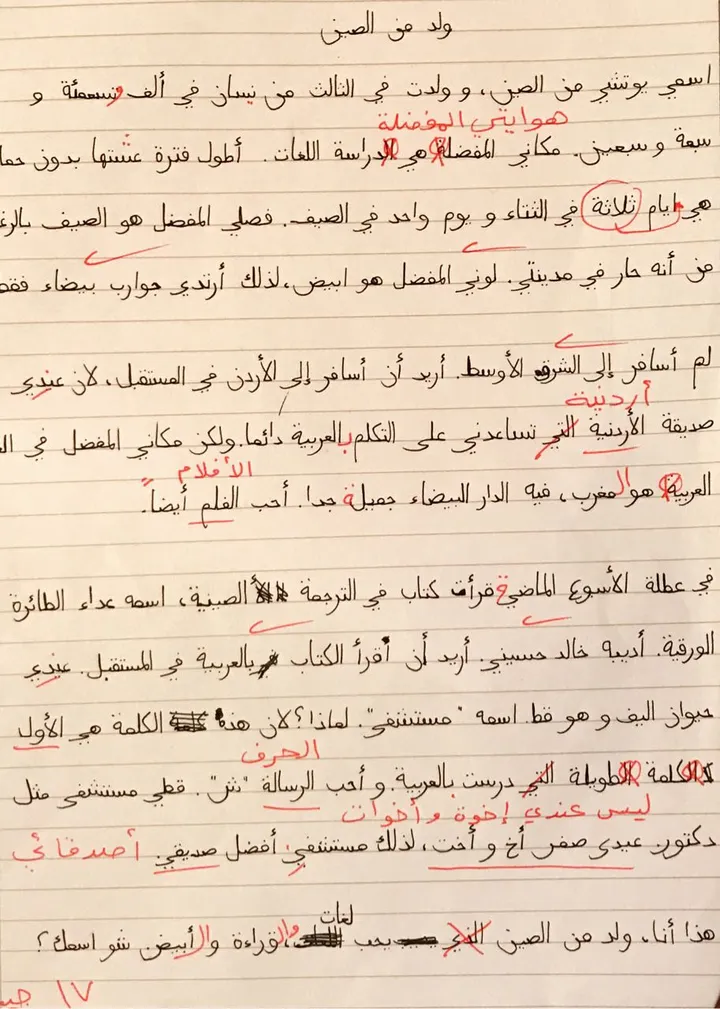 ولد من الصين
اسمي يوتشي من الصين، و ولدت في الثالث من نيسان في ألف وتسعمئة و
هوايتي المفضلة
سبعة و سبعين. مكاني المفضلة هي الدراسة اللغات. أطول فترة عشتها بدون
هي ايام ثلاثة في الثتاء و يوم واحد في الصيف. فصلي المفضل هو الصيف
من أنه حار في مدينتي. لوني المفضل هو ابيض، لذلك أرتدي جوارب بيضاء فقط
لم أسافر إلى الشرق الأوسط. أريد أن أسافر إلى الأردن في المستقبل، لان عندي
أردنية
صديقة الأردنية التي تساعدني على التكلم بالعربية دائما. ولكن مكاني المفضل في
الأفلام
العربية هو المغرب، فيه الدار البيضاء جميلة جدا. أحب الفلم أيضاً.
في عطلة الأسوع الماضية قرأت كتاب في الترجمة الصينية، اسمه عداء الطائرة
الورقية. أديبه خالد حسيني. أريد أن أقرأ الكتاب بالعربية في المستقبل. عندي
حيوان اليف و هو قط. اسمه "مستشفى". لماذا؟ لان هذه الكلمة هي الأول
الحرف
الكلمة الطويلة التي درست بالعربية. و أحب الرسالة "ش". قطي مستشفى مثل
ليس عندي إخوة وأخوات
دكتور. عندي صفر أخ و أخت، لذلك مستشفى أفضل صديقي. أصدقائي
لغات
هذا أنا، ولد من الصين الذي يحب والقراءة والأبيض. شو اسمك؟
١٧